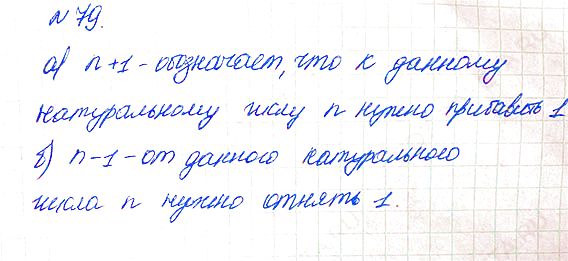 № 79.
а) n+1 - обозначает, что к данному
натуральному числу n нужно прибавить 1
б) n-1 - от данного натурального
числа n нужно отнять 1.